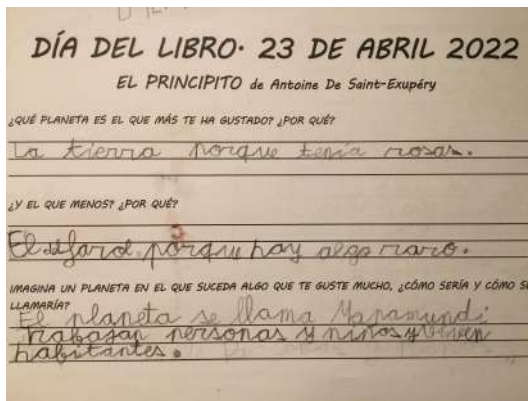 DÍA DEL LIBRO· 23 DE ABRIL 2022
EL PRINCIPITO de Antoine De Saint-Exupéry
¿QUÉ PLANETA ES EL QUE MÁS TE HA GUSTADO? ¿POR QUÉ?
La tierra porque tenía rosas.
¿Y EL QUE MENOS? ¿POR QUÉ?
El porque hay algo raro.
IMAGINA UN PLANETA EN EL QUE SUCEDA ALGO QUE TE GUSTE MUCHO, ¿CÓMO SERÍA Y CÓMO SE
LLAMARÍA?
El planeta se llama Mapamundi
trabajan personas y niños y viven
habitantes.